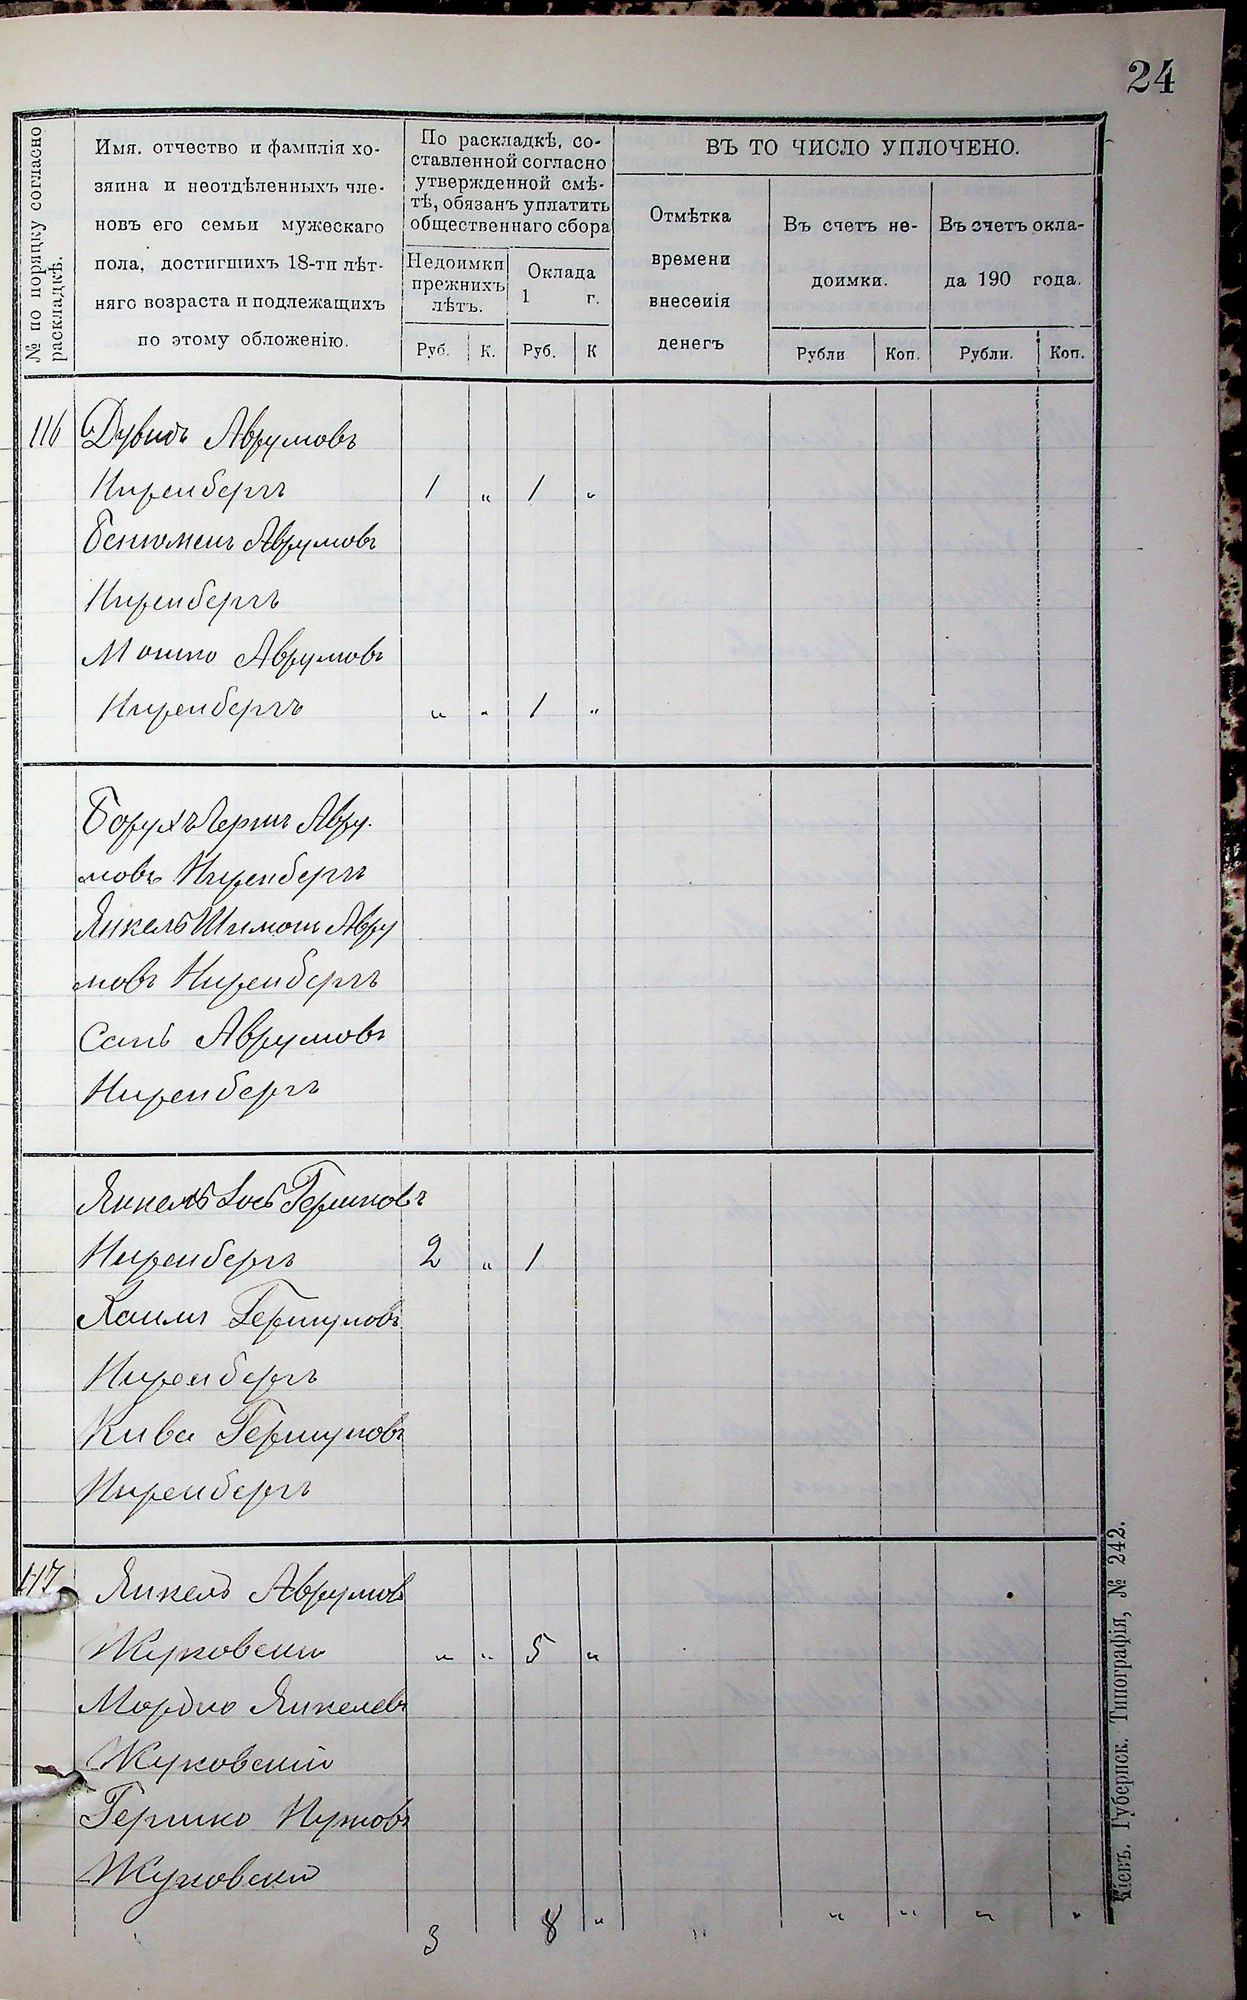 24
№ по порядку согласно раскладкѣ.
Имя, отчество и фамилія хо-
зяина и неотдѣленныхъ чле-
новъ его семьи мужескаго
пола, достигшихъ 18-ти лѣт-
няго возраста и подлежащихъ
по этому обложенію.
По раскладкѣ, со-
ставленной согласно
утвержденной смѣ-
тѣ, обязанъ уплатить
общественнаго сбора
Недоимки
прежнихъ
лѣтъ.
Оклада
1 г.
Руб. К. Руб. К
ВЪ ТО ЧИСЛО УПЛОЧЕНО.
Отмѣтка
времени
внесенія
денегъ
Въ счетъ не-
доимки.
Рубли Коп.
Въ счетъ окла-
да 190 года.
Рубли. Коп.
116 Дувидъ Аврумовъ
Ниренбергъ 1 „ 1 „
Бенюмень Аврумовъ
Ниренбергъ
Мошко Аврумовъ
Ниренбергъ „ „ 1 „
Борухъ Герш Авру-
мовъ Ниренбергъ
Янкель Шимон Авру
мовъ Ниренбергъ
Аврумовъ
Ниренбергъ
Янкель Іось Гершковъ
Ниренбергъ 2 „ 1
Хаимъ Гершуновъ
Ниренбергъ
Кива Гершуновъ
Ниренбергъ
117 Янкель Аврумовъ
Жуковски „ „ 5 „
Мордко Янкелевъ
Жуковскій
Гершко Нутовъ
Жуковски
3 8 „ „ „ „ „ „
Кіевъ. Губернск. Типографія, № 242.